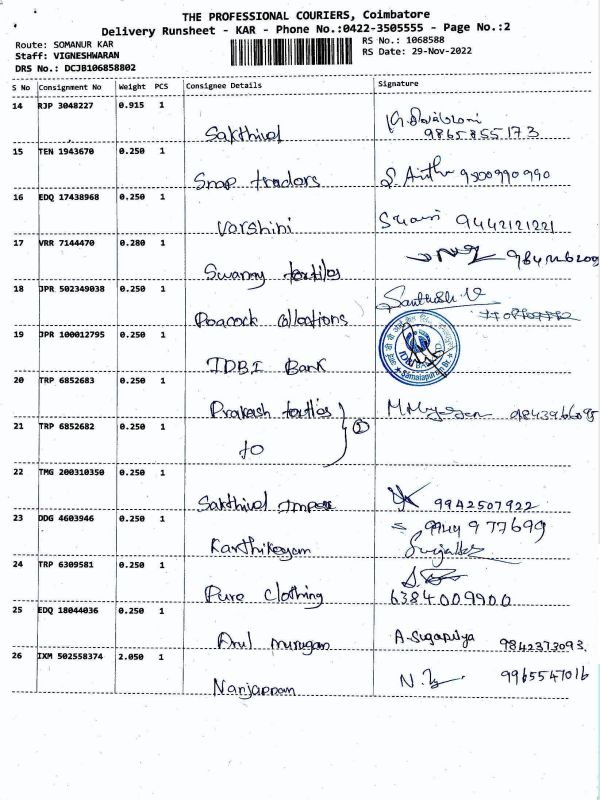 THE PROFESSIONAL COURIERS, Coimbatore
Delivery Runsheet - KAR - Phone No.:0422-3505555 - Page No.:2
Route: SOMANUR KAR
Staff: VIGNESHWARAN
DRS No.: DCJB106858802
RS No.: 1068588
RS Date: 29-Nov-2022
S No Consignment No Weight PCS Consignee Details Signature
14 RJP 3048227 0.915 1
Sakthivel 9865855173
15 TEN 1943670 0.250 1
Snap tradors 9500990990
16 EDQ 17438968 0.250 1
Varshini 9442121221
17 VRR 7144470 0.280 1
Swamy textiles
18 JPR 502349038 0.250 1
Peacock collections Santhosh V
19 JPR 100012795 0.250 1
IDBI Bank
20 TRP 6852683 0.250 1
Prakash textiles M Muyagan 9843966095
21 TRP 6852682 0.250 1
to 2
22 TMG 200310350 0.250 1
Sakthivel Impex 9942507922
23 DDG 4603946 0.250 1
Karthikeyam 9944977699
24 TRP 6309581 0.250 1
Pure clothing 6384009900
25 EDQ 18044036 0.250 1
Arul murugan A-Sugapriya 9842373093
26 IXM 502558374 2.050 1
Nanjappam 9965547016